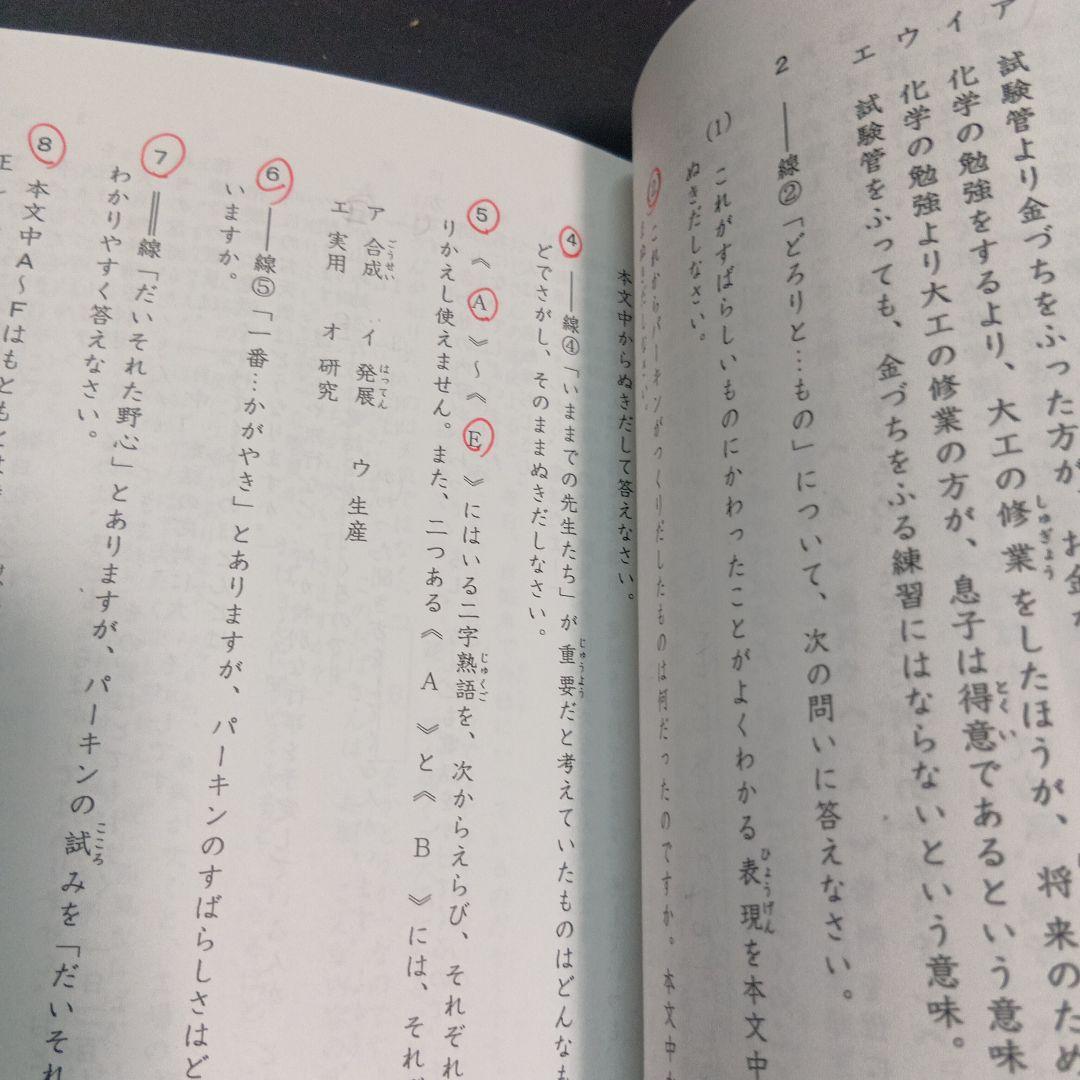 ア 試験管より金づちをふった方が、お金が
イ 化学の勉強をするより、大工の修業をしたほうが、将来のため
ウ 化学の勉強より大工の修業の方が、息子は得意であるという意味
エ 試験管をふっても、金づちをふる練習にはならないという意味。
2 ――線②「どろりと…もの」について、次の問いに答えなさい。
(1) これがすばらしいものにかわったことがよくわかる表現を本文中
ぬきだしなさい。
(2) これからパーキンがつくりだしたものは何だったのですか。本文中
本文中からぬきだして答えなさい。
4 ――線④「いままでの先生たち」が重要だと考えていたものはどんなも
どでさがし、そのままぬきだしなさい。
5 《 A 》～《 E 》にはいる二字熟語を、次からえらび、それぞれ
りかえし使えません。また、二つある《 A 》と《 B 》には、それ
ア 合成 イ 発展 ウ 生産
エ 実用 オ 研究
6 ――線⑤「一番…かがやき」とありますが、パーキンのすばらしさはど
いますか。
7 ══線「だいそれた野心」とありますが、パーキンの試みを「だいそれ
わかりやすく答えなさい。
8 本文中A～Fはもともとは